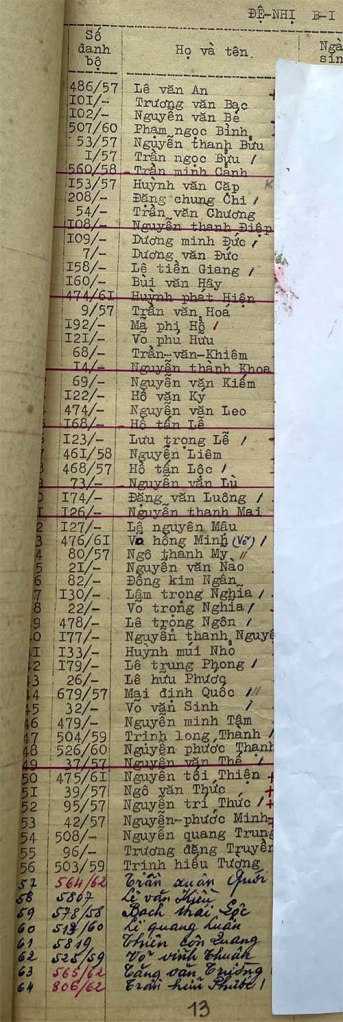 ĐỆ-NHỊ B-I
Số danh bộ Họ và tên Ngà sin
486/57 Lê văn An
IOI/- Trương văn Bạc
IO2/- Nguyễn văn Bé
507/60 Phạm ngọc Bỉnh
53/57 Nguyễn thanh Bửu
I/57 Trần ngọc Bửu
560/58 Trần minh Canh
I53/57 Huỳnh văn Cặp
208/- Đặng chung Chi
54/- Trần văn Chương
IO8/- Nguyễn thanh Điệp
IO9/- Dương minh Đức
7/- Dương văn Đức
I58/- Lê tiền Giang
I60/- Bùi văn Hây
474/6I Huỳnh phát Hiện
9/57 Trần văn Hoá
I92/- Mã phi Hổ
I2I/- Võ phu Hưu
68/- Trần-văn-Khiêm
I4/- Nguyễn thành Khoa
69/- Nguyễn văn Kiểm
I22/- Hồ văn Ký
474/- Nguyễn văn Leo
I68/- Hồ tấn Lễ
I23/- Lưu trọng Lễ
46I/58 Nguyễn Liêm
468/57 Hồ tấn Lộc
73/- Nguyễn văn Lù
I74/- Đặng văn Luông
I26/- Nguyễn thanh Mai
2 I27/- Lê nguyên Mậu
3 476/6I Võ hồng Minh
4 80/57 Ngô thanh Mỹ
5 2I/- Nguyễn văn Nào
6 82/- Đồng kim Ngân
7 I30/- Lâm trọng Nghĩa
8 22/- Võ trọng Nghĩa
9 478/- Lê trọng Ngôn
0 I77/- Nguyễn thanh Nguyê
I I33/- Huỳnh múi Nhỏ
2 I79/- Lê trung Phong
3 26/- Lê hữu Phước
44 679/57 Mai đình Quốc
45 32/- Võ văn Sinh
46 479/- Nguyễn minh Tâm
47 504/59 Trinh long Thanh
48 526/60 Nguyễn phước Thanh
49 37/57 Nguyễn văn Thế
50 475/6I Nguyễn tối Thiện
5I 39/57 Ngô văn Thức
52 95/57 Nguyễn trí Thức
53 42/57 Nguyễn-phước Minh
54 508/- Nguyễn quang Trung
55 96/- Trương đặng Truyền
56 503/59 Trinh hiếu Tượng
57 564/62 Trần xuân
58 Lê văn
59 578/58 Bạch thái Lộc
60 513/60 Lê quang
61 5819 Quang
62 525/59 Võ vĩnh Thuần
63 565/62 Tăng văn Trường
64 806/62 Trần hữu
13